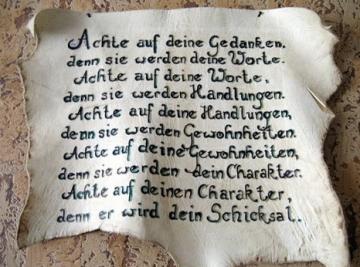 Achte auf deine Gedanken.
denn sie werden deine Worte.
Achte auf deine Worte,
denn sie werden Handlungen.
Achte auf deine Handlungen,
denn sie werden Gewohnheiten.
Achte auf deine Gewohnheiten,
denn sie werden dein Charakter.
Achte auf deinen Charakter,
denn er wird dein Schicksal.